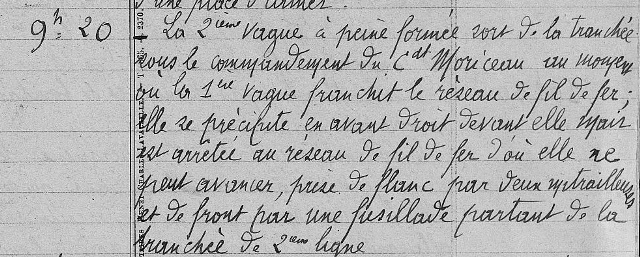 d'une place d'armes.
9h 20 La 2ième vague à peine formée sort de la tranchée
sous le commandement du Cdt Moriceau au moment
où la 1ère vague franchit le réseau de fil de fer ;
elle se précipite en avant droit devant elle mais
est arrêtée au réseau de fil de fer d'où elle ne
peut avancer, prise de flanc par deux mitrailleuses
et de front par une fusillade partant de la
tranchée de 2ième ligne